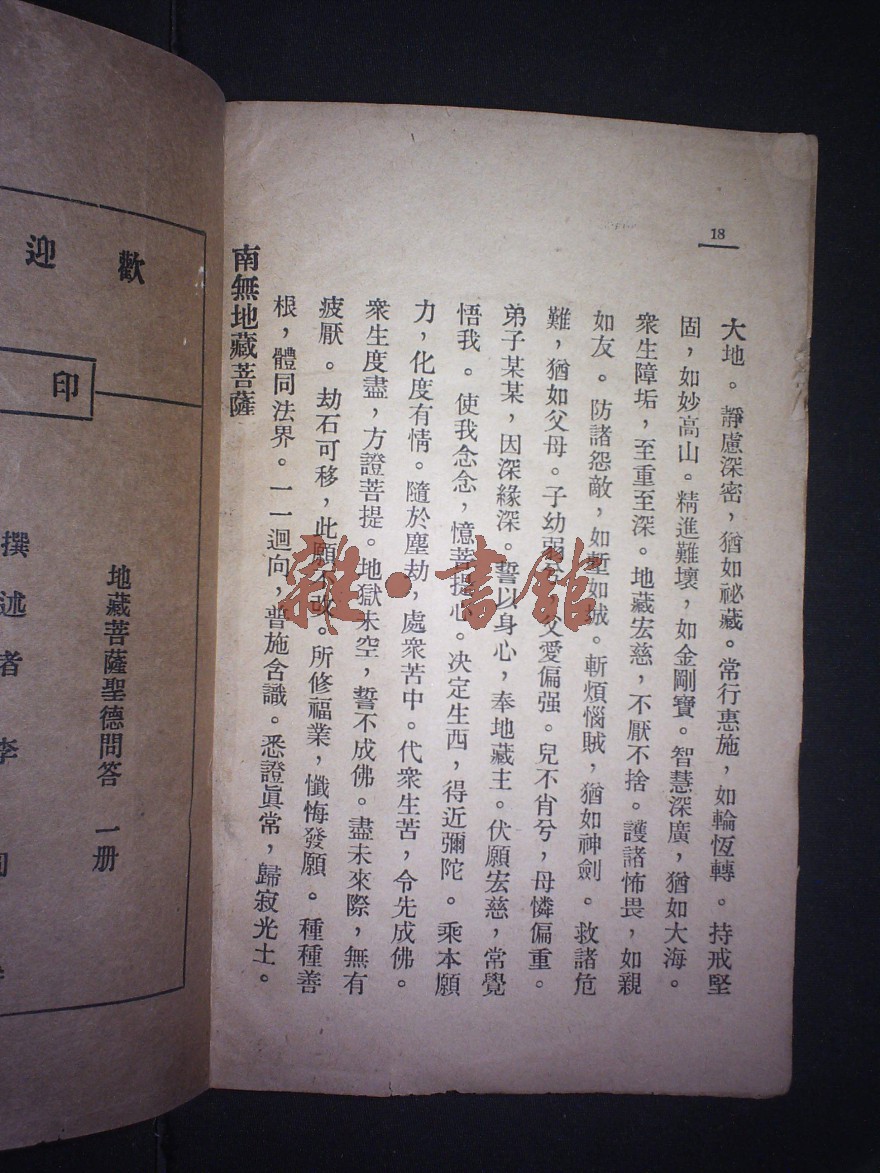 18
大地。靜慮深密，猶如祕藏。常行惠施，如輪恆轉。持戒堅
固，如妙高山。精進難壞，如金剛寶。智慧深廣，猶如大海。
衆生障垢，至重至深。地藏宏慈，不厭不捨。護諸怖畏，如親
如友。防諸怨敵，如塹如城。斬煩惱賊，猶如神劍。救諸危
難，猶如父母。子幼弱兮，父愛偏强。兒不肖兮，母憐偏重。
弟子某某，因深緣深。誓以身心，奉地藏主。伏願宏慈，常覺
悟我。使我念念，憶菩提心。決定生西，得近彌陀。乘本願
力，化度有情。隨於塵劫，處衆苦中。代衆生苦，令先成佛。
衆生度盡，方證菩提。地獄未空，誓不成佛。盡未來際，無有
疲厭。劫石可移，此願不改。所修福業，懺悔發願。種種善
根，體同法界。一一迴向，普施含識。悉證眞常，歸寂光土。
南無地藏菩薩
雜·書館
歡迎
印
地藏菩薩聖德問答　一册
撰述者　李